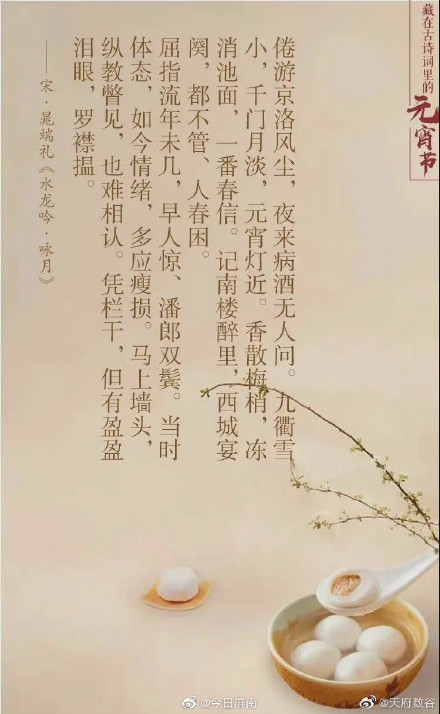 藏在古诗词里的
元宵节
倦游京洛风尘，夜来病酒无人问。九衢雪
小，千门月淡，元宵灯近。香散梅梢，冻
消池面，一番春信。记南楼醉里，西城宴
阕，都不管、人春困。
屈指流年未几，早人惊、潘郎双鬓。当时
体态，如今情绪，多应瘦损。马上墙头，
纵教瞥见，也难相认。凭栏干，但有盈盈
泪眼，罗襟揾。
——宋·晁端礼《水龙吟·咏月》
@今日屏南
@天府数谷